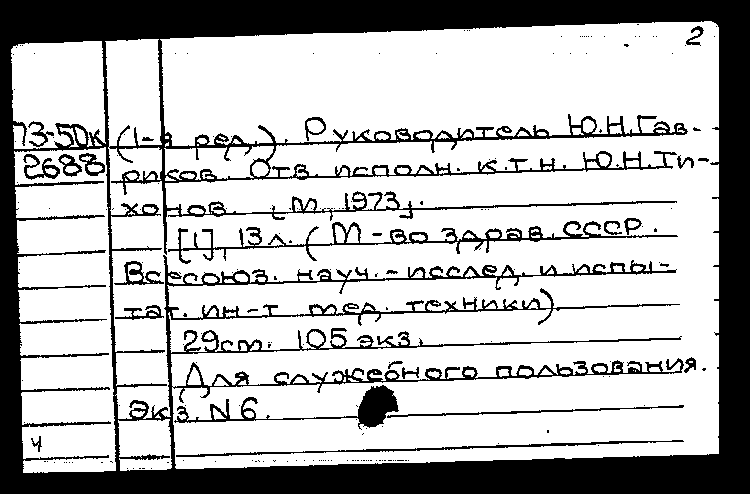 2
73-50к (1-я ред.). Руководитель Ю.Н.Гав-
2688 риков. Отв. исполн. к.т.н. Ю.Н.Ти-
хонов. [М., 1973].
[1], 13л. (М-во здрав. СССР.
Всесоюз. науч.-исслед. и испы-
тат. ин-т мед. техники).
29см. 105 экз.
Для служебного пользования.
Экз. N 6.
ч